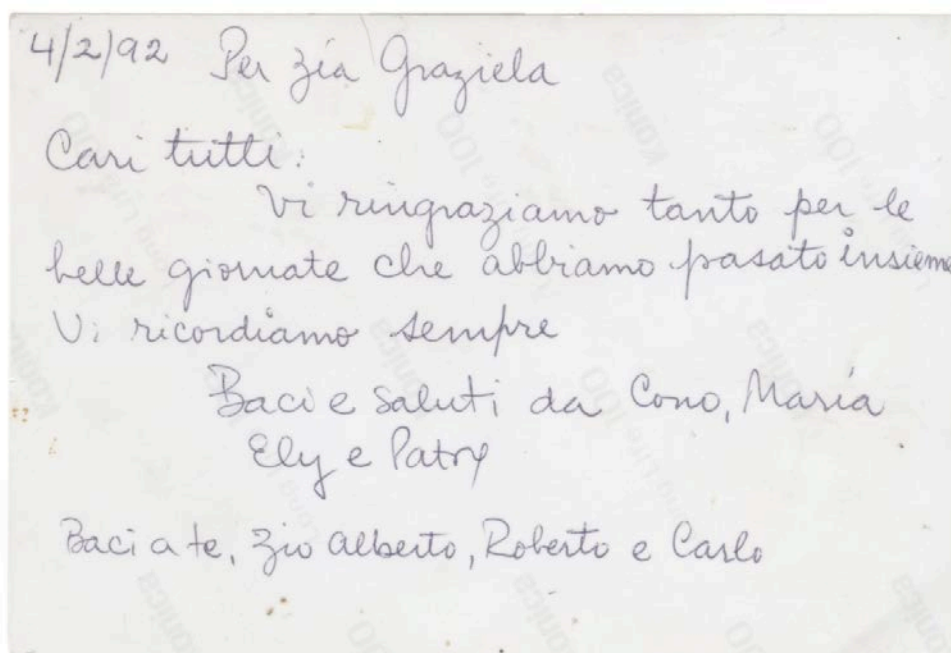 4/2/92 Per zia Graziela
Cari tutti:
Vi ringraziamo tanto per le
belle giornate che abbiamo pasato insieme
Vi ricordiamo sempre
Baci e saluti da Cono, María
Ely e Patry
Baci a te, zio Alberto, Roberto e Carlo